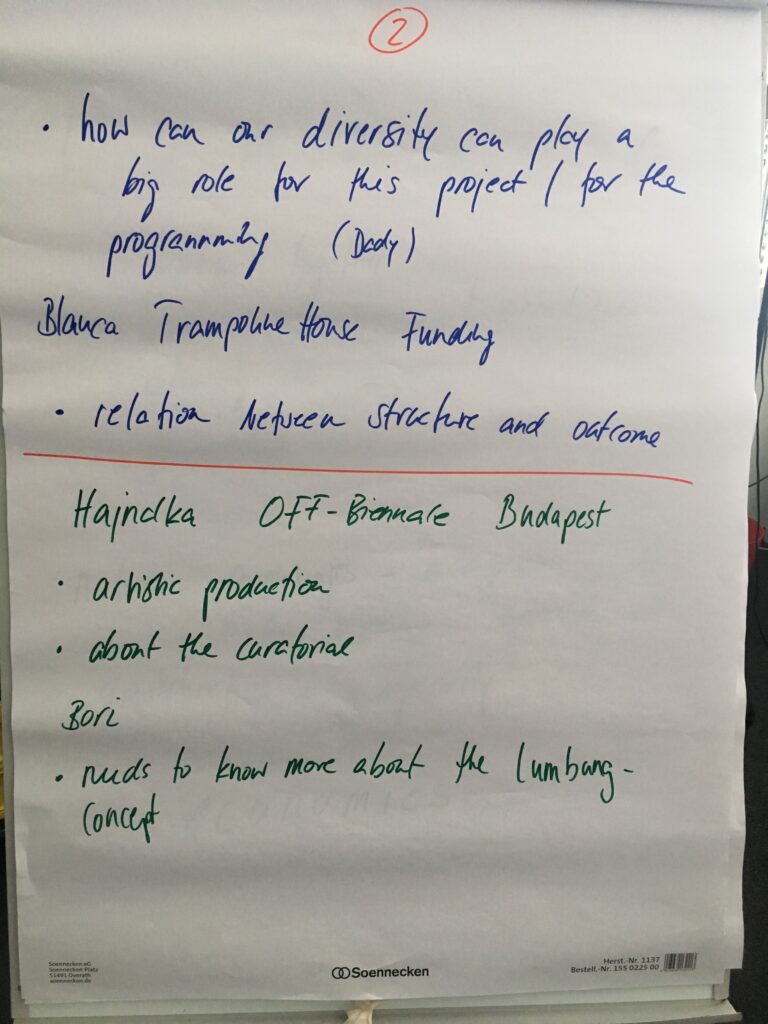 2
• how can our diversity can play a
big role for this project / for the
programming (Dady)
Blanca Trampoline House Funding
• relation between structure and outcome
Hajnalka OFF-Biennale Budapest
• artistic production
• about the curatorial
Bori
• needs to know more about the lumbung-
concept
Soennecken eG
Soennecken Platz
51491 Overath
soennecken.de
Soennecken
Herst.-Nr. 1137
Bestell.-Nr. 155 0225 00